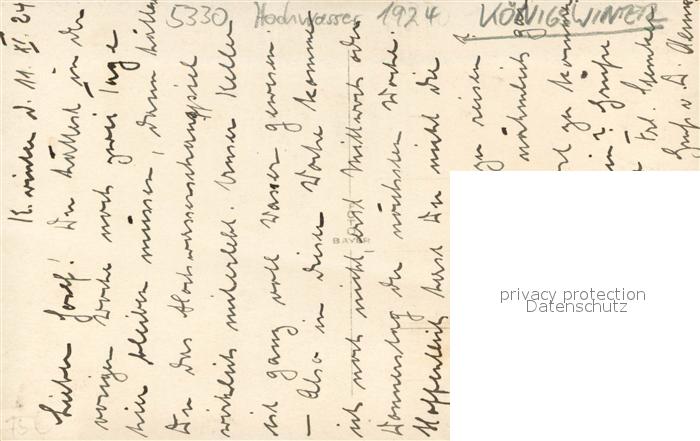 5330 Hochwasser 1924 KÖNIGSWINTER
K.winter d. 11. XI. 24
Lieber Josef! Du hättest in der
vorigen Woche noch zwei Tage
hier bleiben müssen, dann hättest
Du das Hochwasserschauspiel
wirklich miterlebt. Unser Keller
ist ganz voll Wasser gewesen
– Also in dieser Woche komme
ich noch nicht, erst Mittwoch oder
Donnerstag der nächsten Woche.
Hoffentlich hast Du nicht die
reisen
zu
Grüße
Frl.
BAYER
privacy protection
Datenschutz